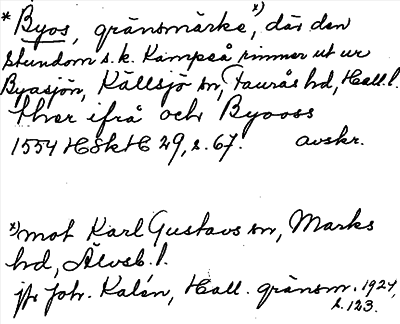 * Byos, gränsmärke, x) där den
stundom s.k. Kampså rinner ut ur
Byasjön, Källsjö sn, Faurås hd, Hall. l.
thær ifrå och Byooss
1554 HSkH 29, s. 67. avskr.
x) mot Karl Gustavs sn, Marks
hd, Älvsb. l.
jfr Joh. Kalén, Hall. gränsm. 1924,
s. 123.